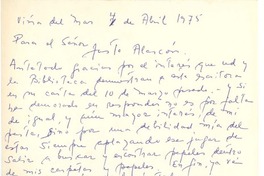 Viña del Mar 4 de Abril 1975
Para el Señor Justo Alarcón.
Ante todo gracias por el interés que ud y
la Biblioteca demuestran a esta escritora
en su carta del 10 de marzo pasado. Y si
he demorado en responder no es por falta
de igual, y aun mayor interés, de mi
parte, sino por una debilidad mía del
estar siempre aplazando ese jugar de
salir a buscar y encontrar papeles dentro
de mis carpetas y papeles. En fin, ya van